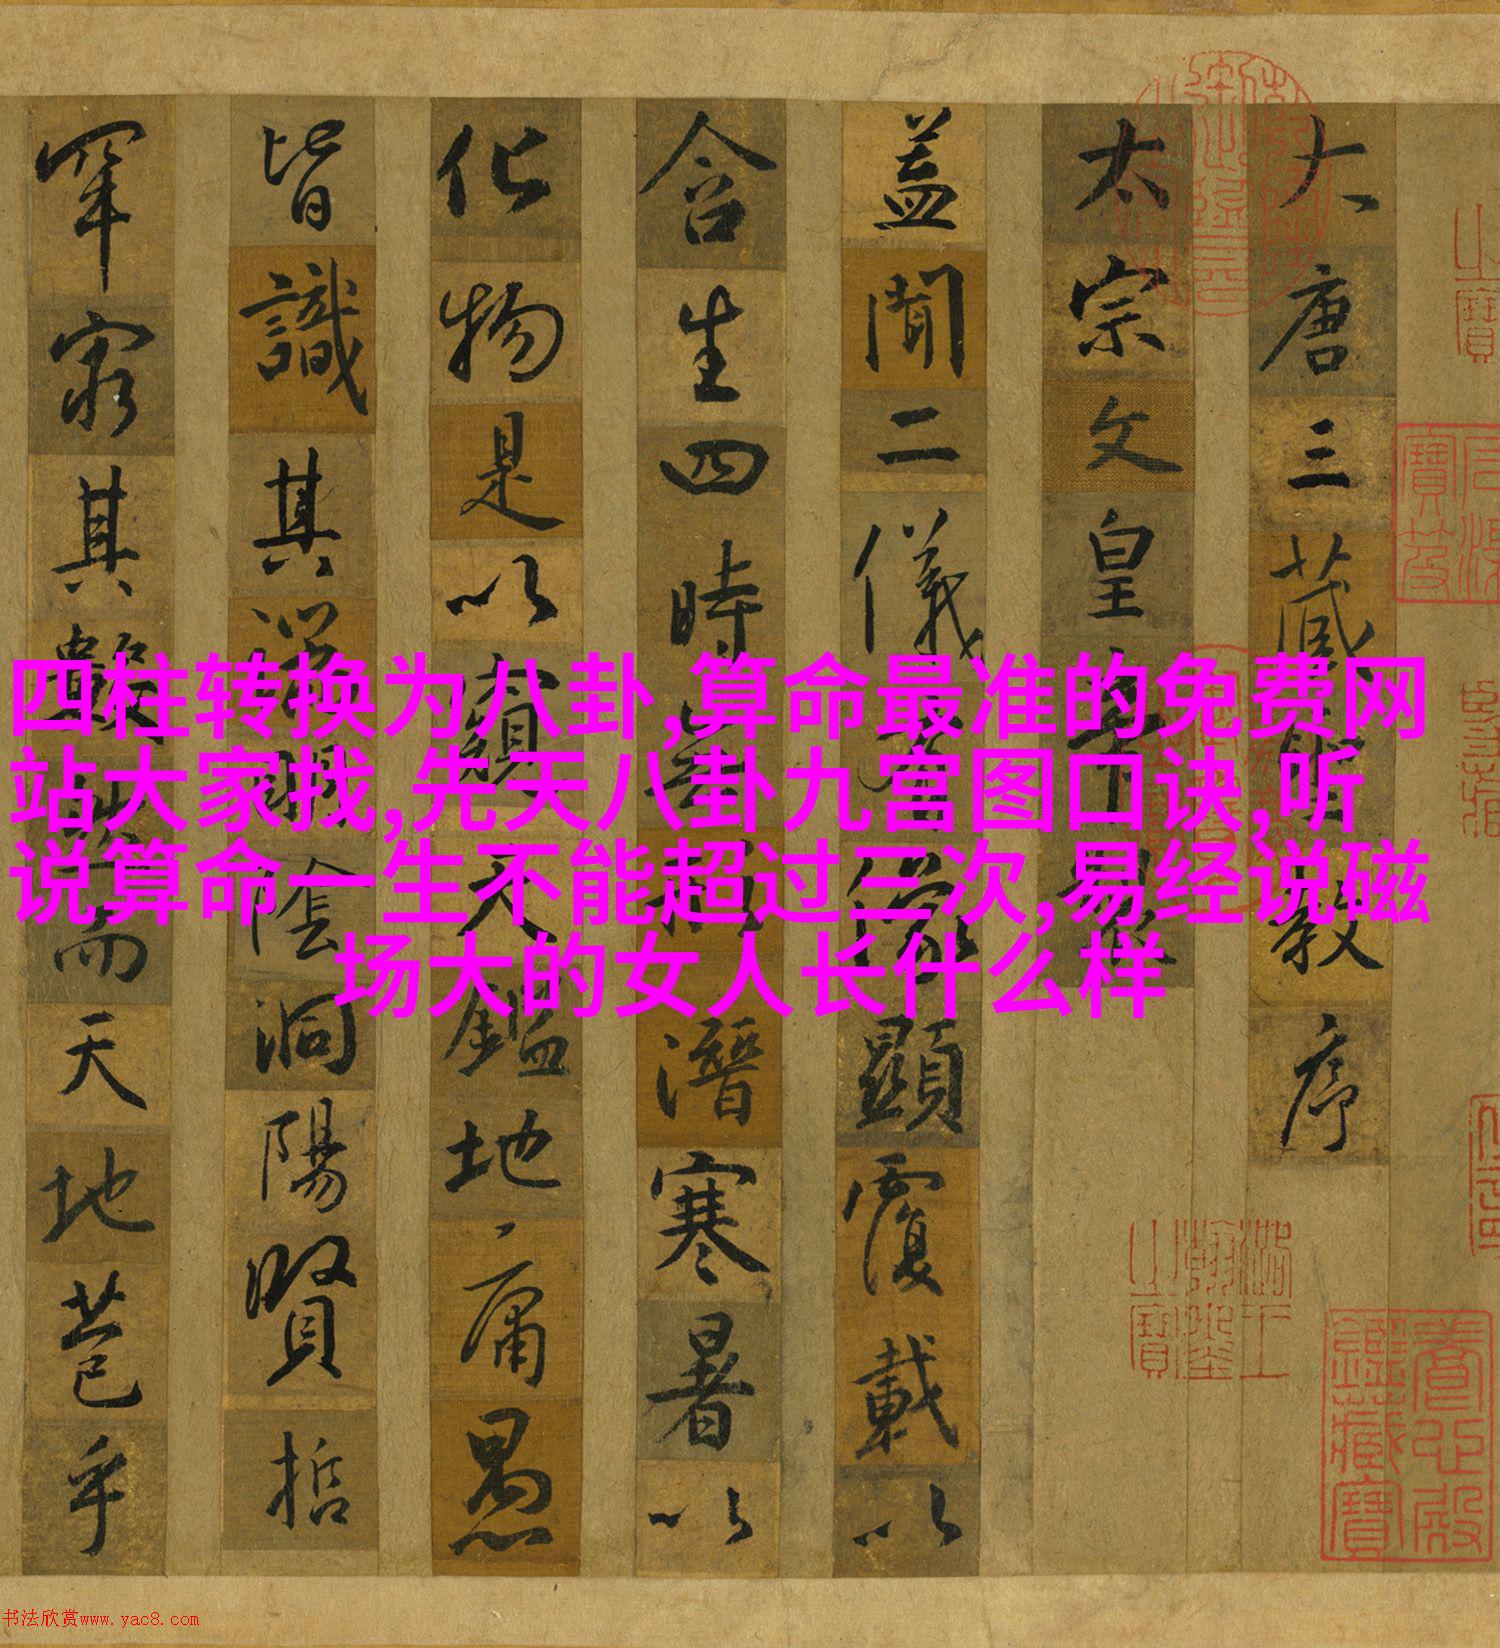 大唐三藏聖教序
太宗文皇帝製
蓋聞二儀有像顯覆載以
含生四時無形潛寒暑以
化物是以窺天鑑地庸愚
皆識其端明陰洞陽賢哲
罕窮其數然而天地苞乎
四柱转换为八卦,算命最准的免费网
站大家找,先天八卦九宫图口诀,听
说算命一生不能超过三次,易经说磁
场大的女人长什么样
養心殿
鑑藏寶
书法欣赏www.yac8.com